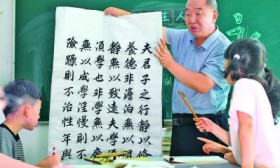 夫君子之行靜以
養德非泊無以
靜無以致遠夫學
須學也非學無以
無以成學也
險躁則不治性年與
主人